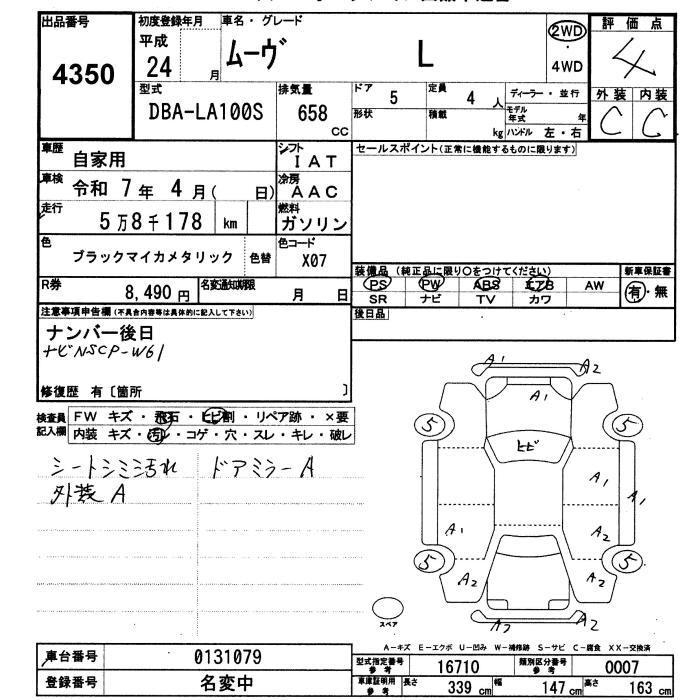 出品番号
4350
初度登録年月
平成
24 月
車名・グレード
ムーヴ L
2WD
・
4WD
評価点
4
外装 内装
C C
型式
DBA-LA100S
排気量
658
CC
ドア
5
定員
4 人
形状
積載
kg
ディーラー・並行
モデル年式 年
ハンドル 左・右
車歴
自家用
シフト
IAT
セールスポイント(正常に機能するものに限ります)
車検
令和 7年 4月( 日)
冷房
AAC
走行
5万8千178 km
燃料
ガソリン
色
ブラックマイカメタリック
色替
色コード
X07
装備品 (純正品に限り○をつけてください)
PS PW ABS エアB AW
SR ナビ TV カワ
新車保証書
有・無
R券
8,490 円
名変通知期限
月 日
後日品
注意事項申告欄(不具合内容等は具体的に記入して下さい)
ナンバー後日
ナビNSCP-W61
修復歴 有〔箇所 〕
検査員記入欄
FW キズ・飛石・ヒビ割・リペア跡・×要
内装 キズ・汚レ・コゲ・穴・スレ・キレ・破レ
シートシミ汚れ ドアミラーA
外装A
A1 A2
A1
5 5
ヒビ
A1 A1
A1 A2
5 5
A2 A2
A2 A2
スペア
A-キズ E-エクボ U-凹み W-補修跡 S-サビ C-腐食 XX-交換済
車台番号
0131079
型式指定番号
参考
16710
類別区分番号
参考
0007
登録番号
名変中
車庫証明用
参考
長さ 339 cm 幅 147 cm 高さ 163 cm